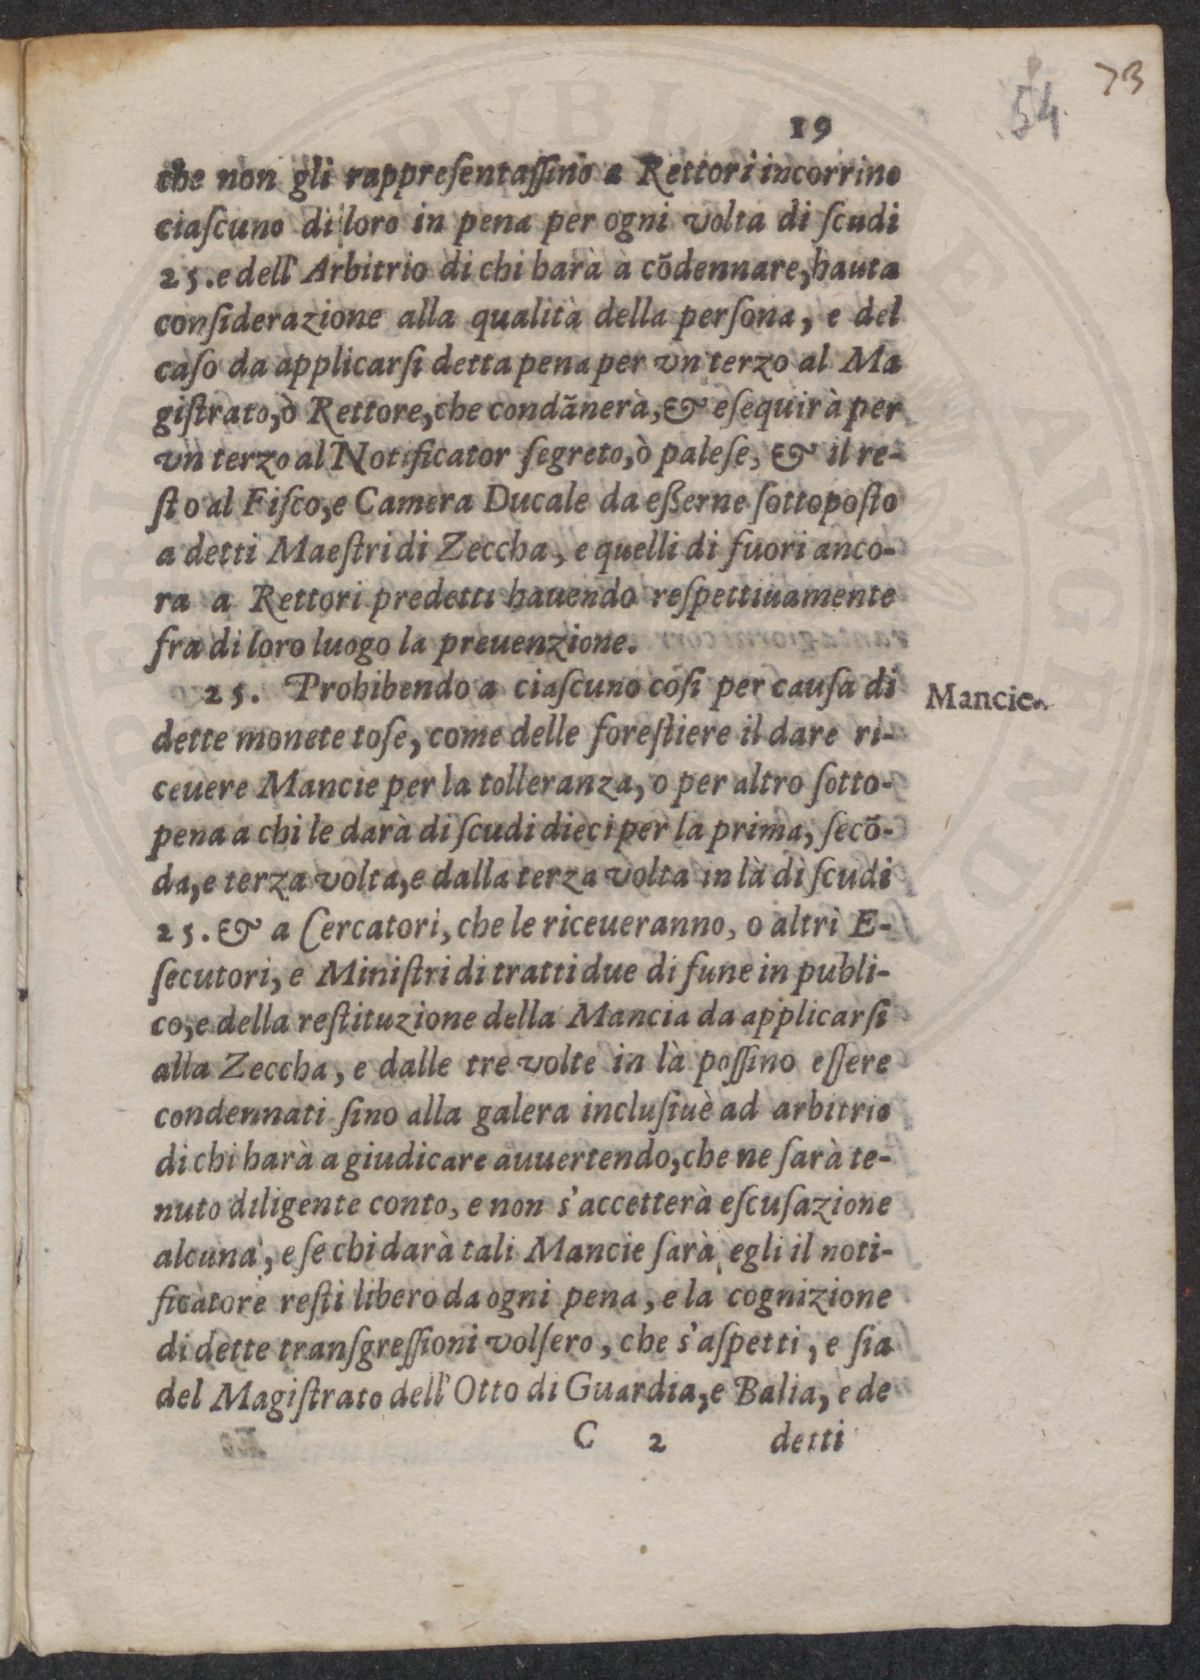 54 73
19
che non gli rappreſentaſſino a Rettori incorrino
ciaſcuno di loro in pena per ogni volta di ſcudi
25. e dell' Arbitrio di chi harà à cõdennare, hauta
conſiderazione alla qualità della perſona, e del
caſo da applicarſi detta pena per vn terzo al Ma
giſtrato, ò Rettore, che condãnerà, & eſequirà per
vn terzo al Notificator ſegreto, ò paleſe, & il re-
ſto al Fiſco, e Camera Ducale da eßerne ſottopoſto
a detti Maeſtri di Zeccha, e quelli di fuori anco-
ra a Rettori predetti hauendo reſpettiuamente
fra di loro luogo la preuenzione.
25. Prohibendo a ciaſcuno coſi per cauſa di
Mancie.
dette monete toſe, come delle foreſtiere il dare ri-
ceuere Mancie per la tolleranza, o per altro ſotto-
pena a chi le darà di ſcudi dieci per la prima, ſecõ-
da, e terza volta, e dalla terza volta in là di ſcudi
25. & a Cercatori, che le riceueranno, o altri E-
ſecutori, e Miniſtri di tratti due di fune in publi-
co, e della reſtituzione della Mancia da applicarſi
alla Zeccha, e dalle tre volte in là poſſino eſſere
condennati ſino alla galera incluſiuè ad arbitrio
di chi harà a giudicare auuertendo, che ne ſarà te-
nuto diligente conto, e non s'accetterà eſcuſazione
alcuna, e ſe chi darà tali Mancie ſarà egli il noti-
ficatore reſti libero da ogni pena, e la cognizione
di dette tranſgreſſioni volſero, che s'aſpetti, e ſia
del Magiſtrato dell' Otto di Guardia, e Balia, e de
C 2 detti